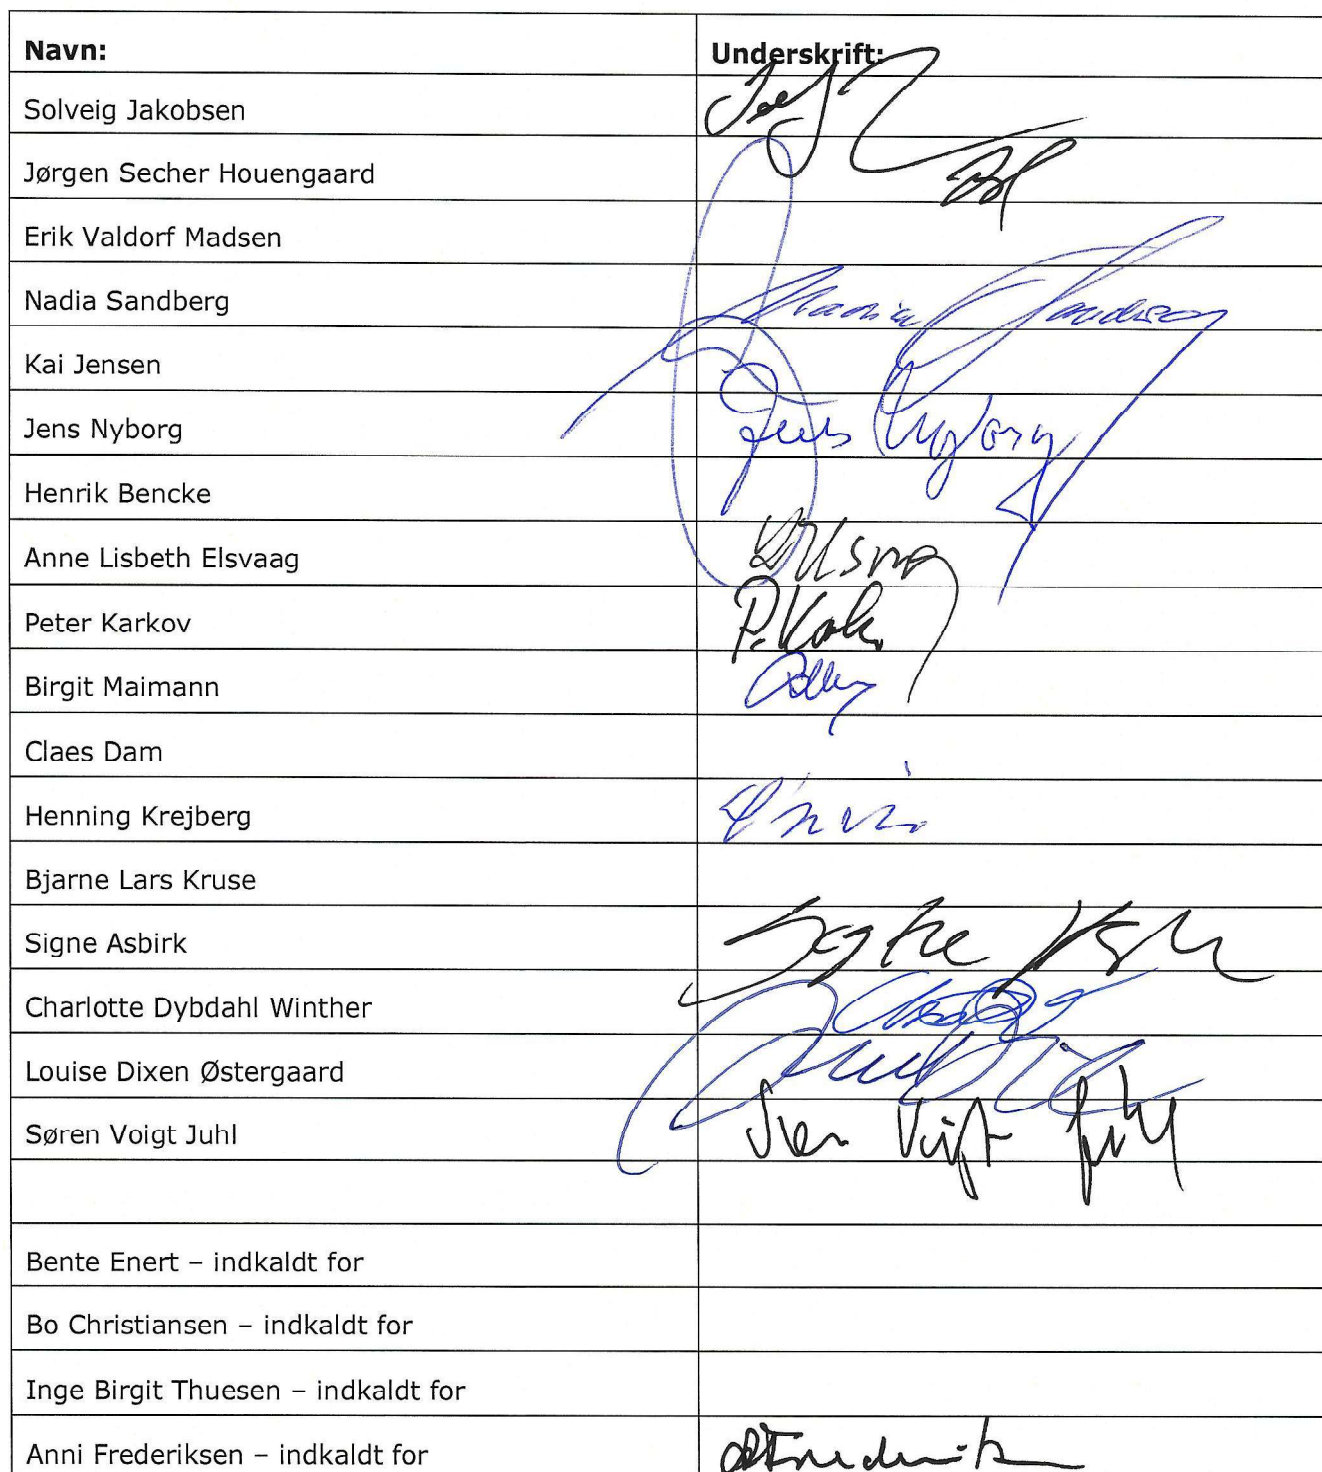 Navn: Underskrift:
Solveig Jakobsen
Jørgen Secher Houengaard
Erik Valdorf Madsen
Nadia Sandberg Nadia Sandberg
Kai Jensen
Jens Nyborg Jens Nyborg
Henrik Bencke
Anne Lisbeth Elsvaag
Peter Karkov P. Kark.
Birgit Maimann
Claes Dam
Henning Krejberg
Bjarne Lars Kruse
Signe Asbirk Signe
Charlotte Dybdahl Winther
Louise Dixen Østergaard
Søren Voigt Juhl Søren Voigt Juhl
Bente Enert – indkaldt for
Bo Christiansen – indkaldt for
Inge Birgit Thuesen – indkaldt for
Anni Frederiksen – indkaldt for